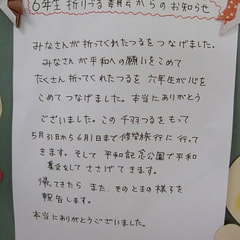 6年生 折りづる委員会からのお知らせ
みなさんが折ってくれたつるをつなげました。
みなさんが平和への願いをこめて
たくさん折ってくれたつるを 六年生が心を
こめてつなげました。本当にありがとう
ございました。この千羽づるをもって
5月31日から6月1日まで修学旅行に行って
きます。そして平和記念公園で平和
集会をしてささげてきます。
帰ってきたら また、そのときの様子を
報告します。
本当にありがとうございました。